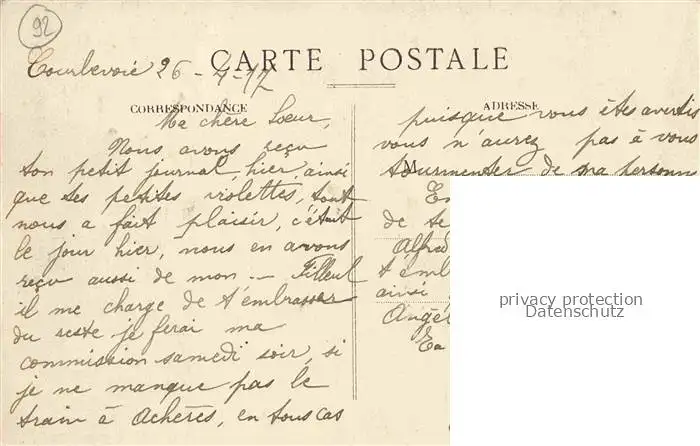 92
Courbevoie 26-4-17
CARTE POSTALE
CORRESPONDANCE
ADRESSE
Ma chère Soeur,
Nous avons reçu
ton petit journal, hier, ainsi
que tes petites violettes, tout
nous a fait plaisir, c'était
le jour hier, nous en avons
reçu aussi de mon -- Filleul
il me charge de t'embrasser
du reste je ferai ma
commission samedi soir, si
je ne manque pas le
train à Achères, en tous cas
puisque vous êtes avertis
vous n'aurez pas à vous
M
tourmenter de ma personne
En
de te
Alfred
t'emb
ainsi
Angèl
Ta
privacy protection
Datenschutz